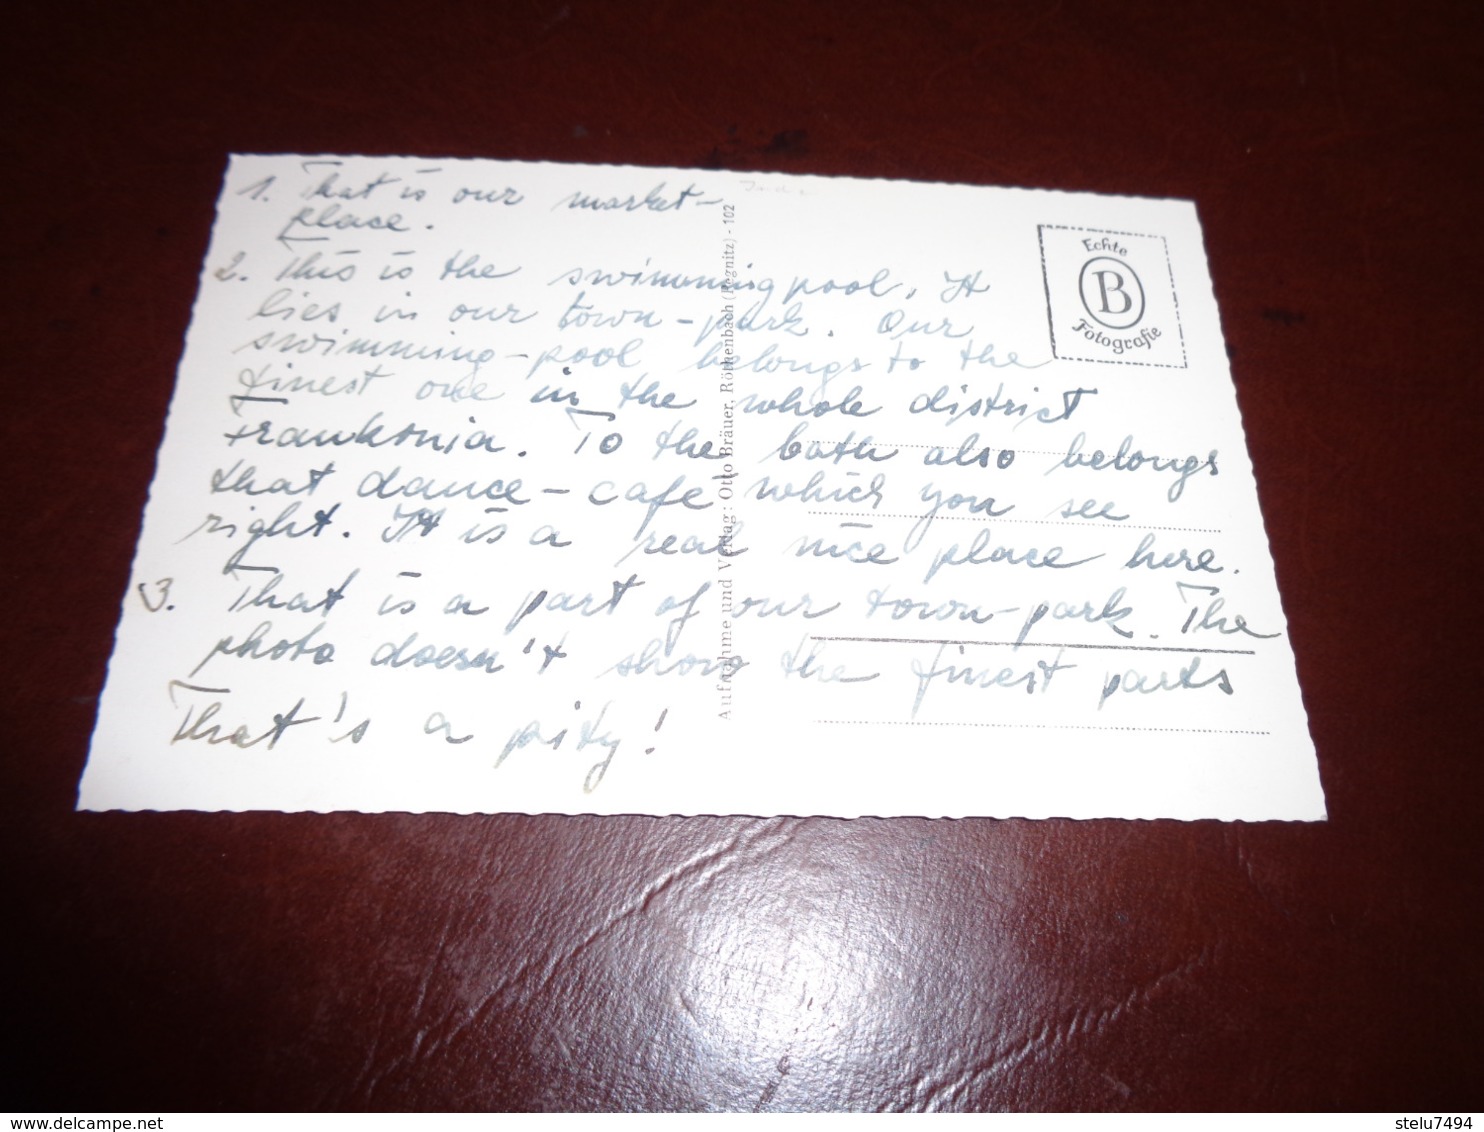 1. That is our market-
place.
2. This is the swimmingpool. It
lies in our town-park. Our
swimming-pool belongs to the
finest one in the whole district
Frankonia. To the bath also belongs
that dance-café which you see
right. It is a real nice place here.
3. That is a part of our town-park. The
photo doesn't show the finest parts
That's a pity!
Aufnahme und Verlag: Otto Bräuer, Röthenbach (Pegnitz) - 102
Echte
B
Fotografie
delcampe.net
stelu7494